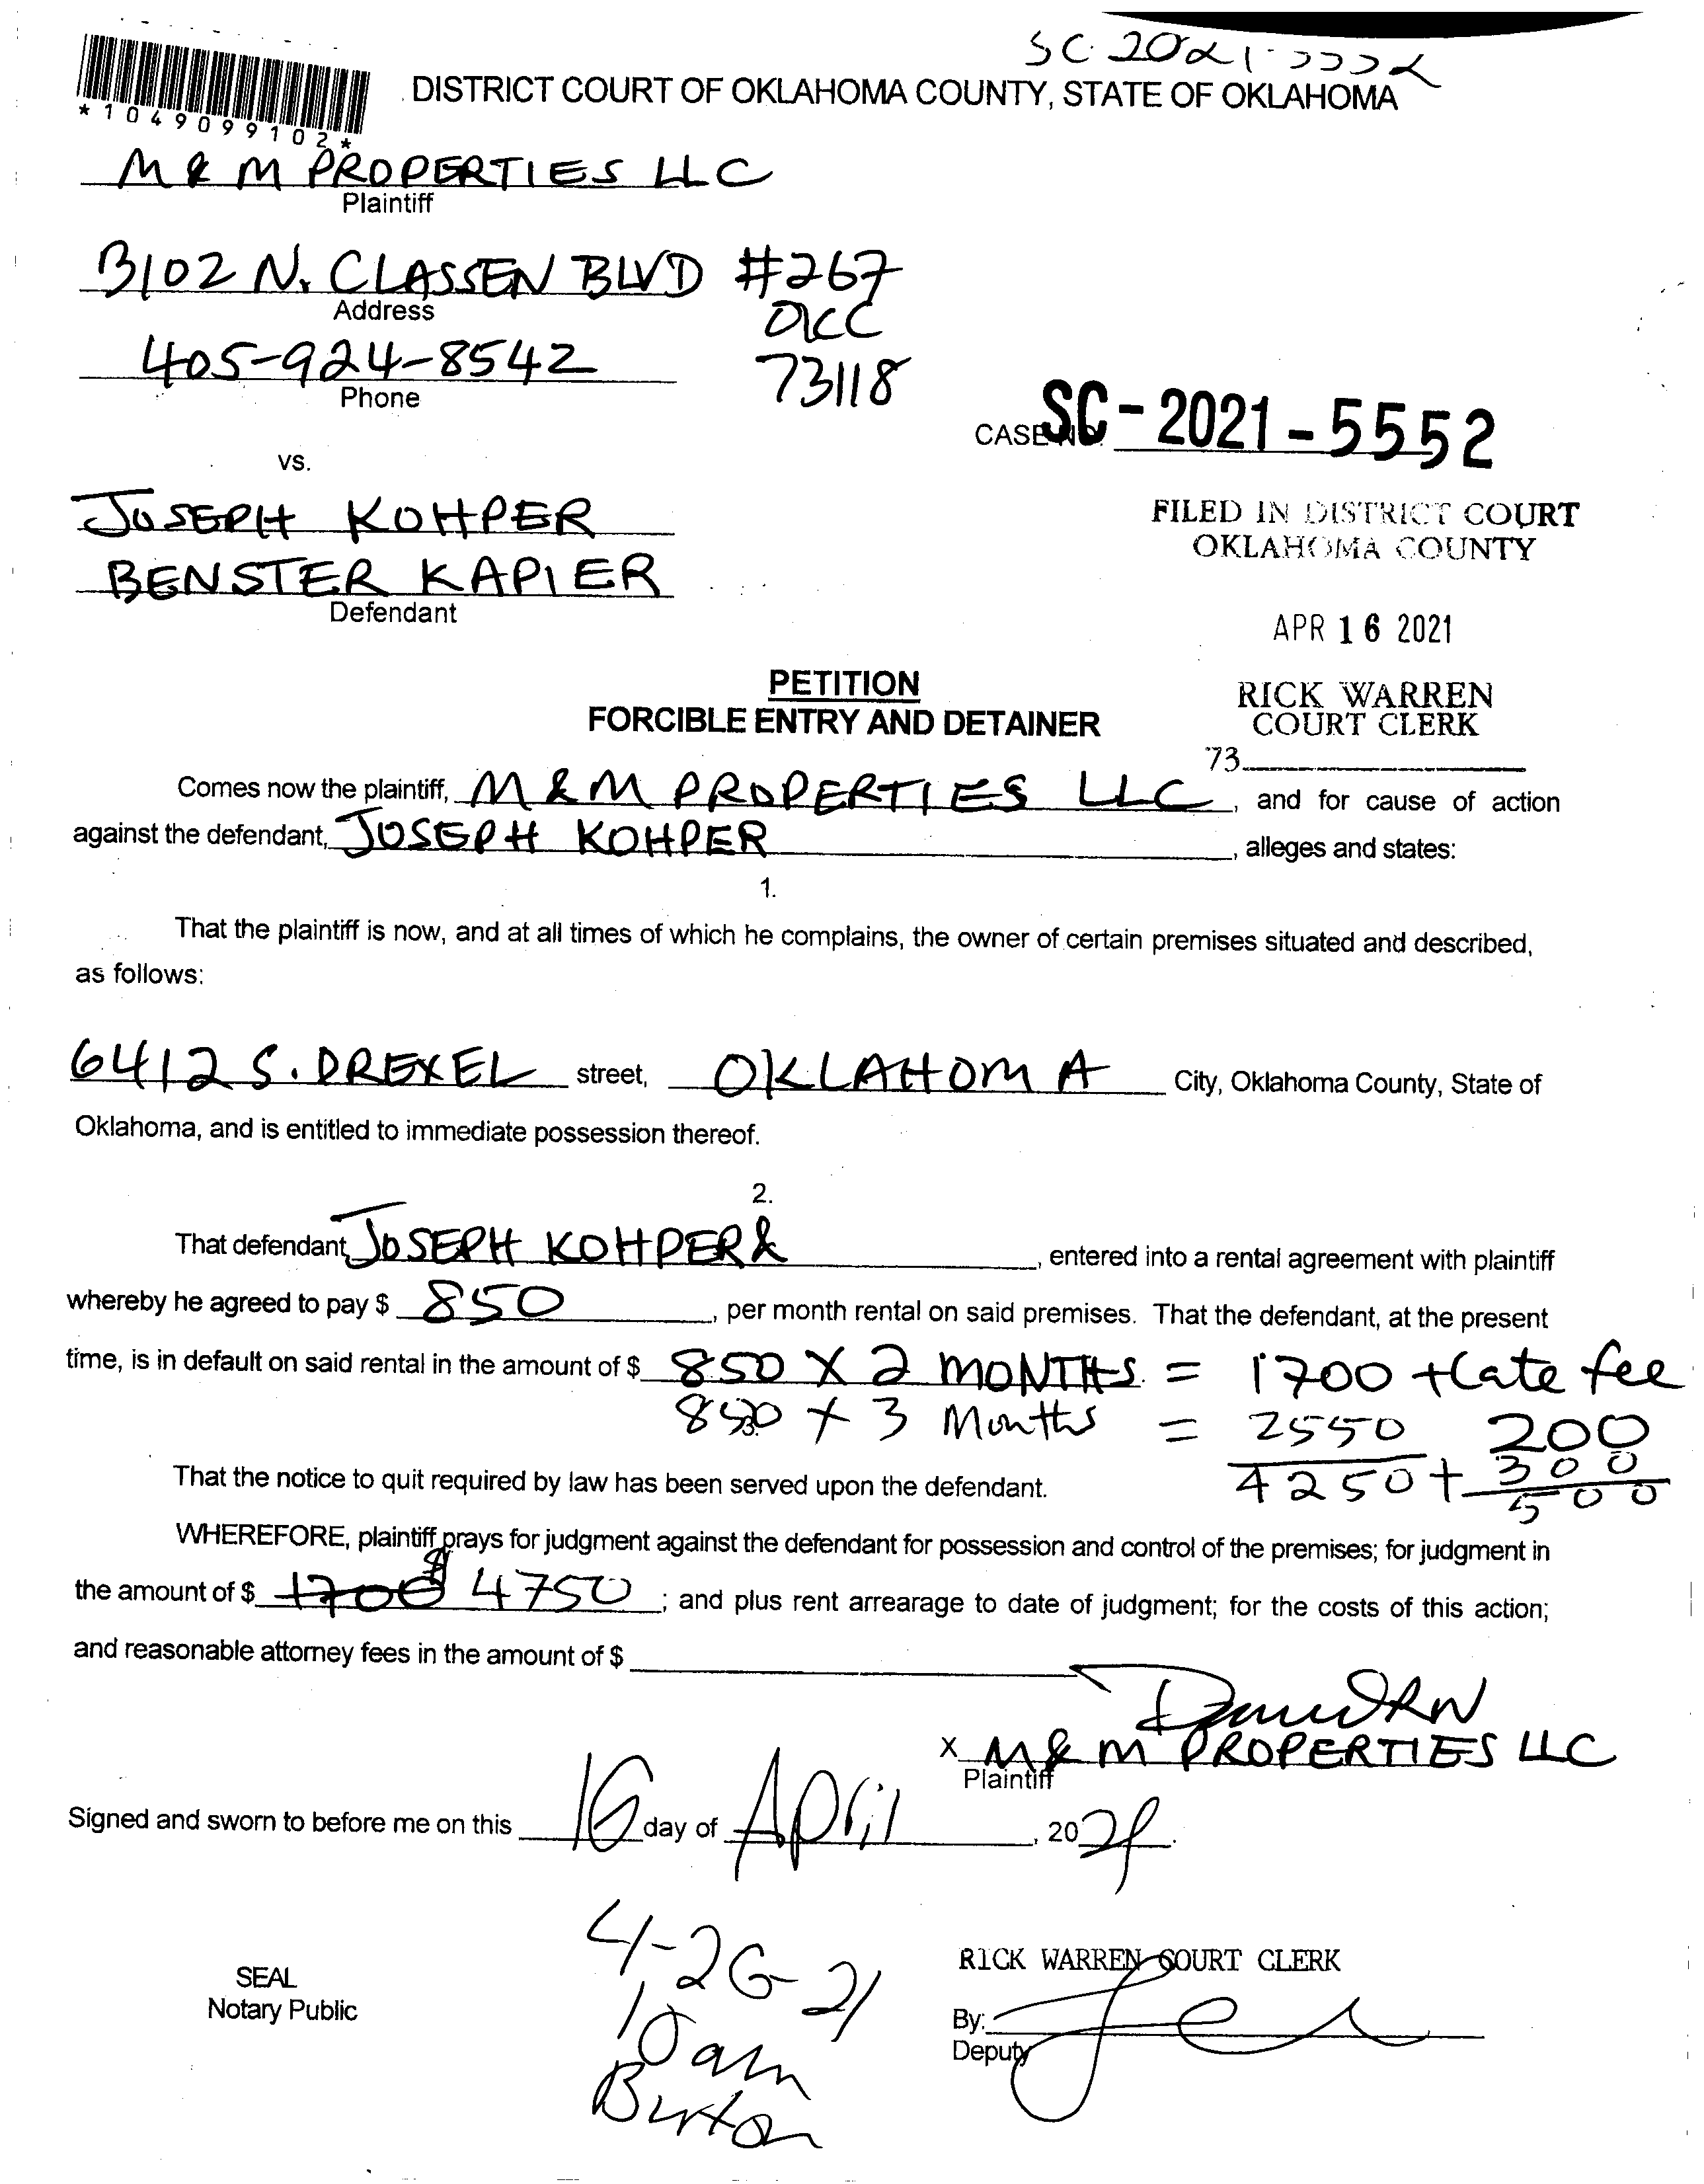 SC 2021-5552
DISTRICT COURT OF OKLAHOMA COUNTY, STATE OF OKLAHOMA
*1049099102*
M & M PROPERTIES LLC
Plaintiff
3102 N. CLASSEN BLVD #267
Address
OKC
405-924-8542
73118
Phone
CASE NO. SC-2021-5552
vs.
JOSEPH KOHPER
FILED IN DISTRICT COURT
OKLAHOMA COUNTY
BENSTER KAPIER
Defendant
APR 16 2021
PETITION
RICK WARREN
FORCIBLE ENTRY AND DETAINER
COURT CLERK
73
Comes now the plaintiff, M & M PROPERTIES LLC, and for cause of action
against the defendant, JOSEPH KOHPER, alleges and states:
1.
That the plaintiff is now, and at all times of which he complains, the owner of certain premises situated and described,
as follows:
6412 S. DREXEL street, OKLAHOMA City, Oklahoma County, State of
Oklahoma, and is entitled to immediate possession thereof.
2.
That defendant, JOSEPH KOHPER &, entered into a rental agreement with plaintiff
whereby he agreed to pay $ 850, per month rental on said premises. That the defendant, at the present
time, is in default on said rental in the amount of $ 850 X 2 MONTHS. = 1700 + Late fee
850 X 3 Months = 2550 200
4250 + 300
That the notice to quit required by law has been served upon the defendant.
500
WHEREFORE, plaintiff prays for judgment against the defendant for possession and control of the premises; for judgment in
the amount of $ 1700 $ 4750; and plus rent arrearage to date of judgment; for the costs of this action;
and reasonable attorney fees in the amount of $
X M & M PROPERTIES LLC
Plaintiff
Signed and sworn to before me on this 16 day of April, 2021.
4-26-21
10 am
Burton
SEAL
Notary Public
RICK WARREN COURT CLERK
By:
Deputy